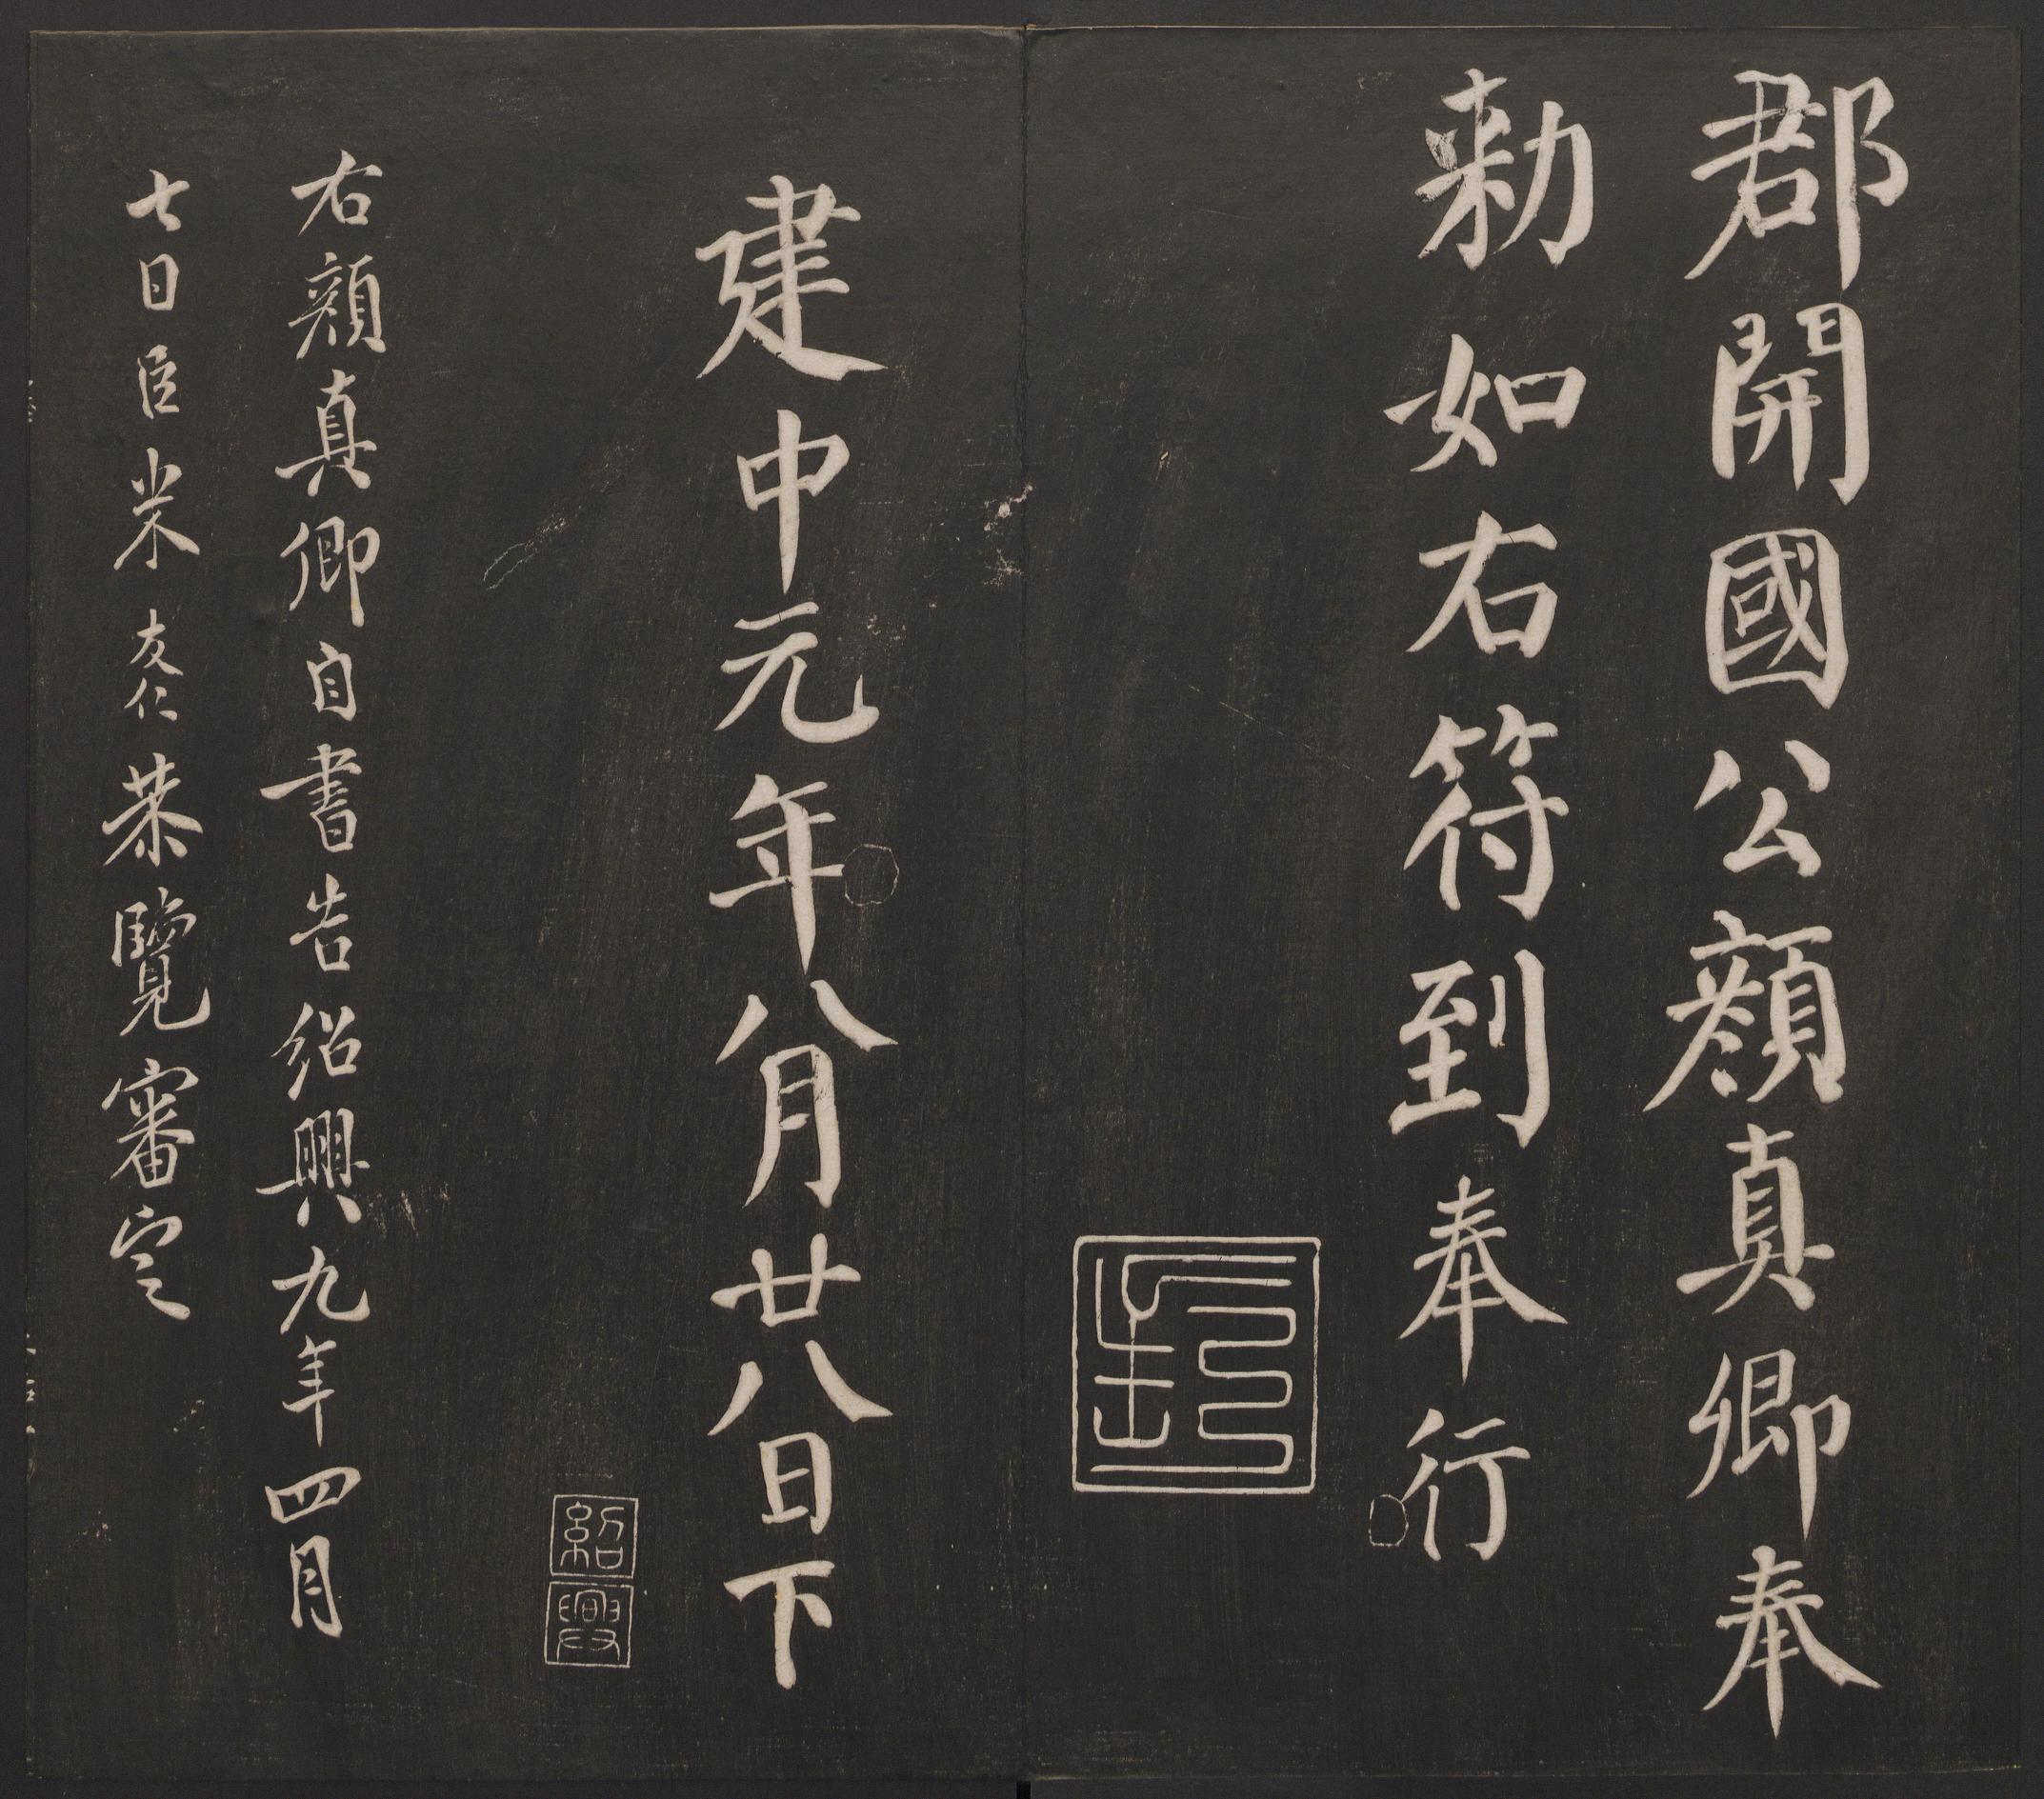 郡開國公顏真卿奉
勑如右符到奉行
建中元年八月廿八日下
紹興
右顏真卿自書告紹興九年四月
七日臣米友仁恭覽審定